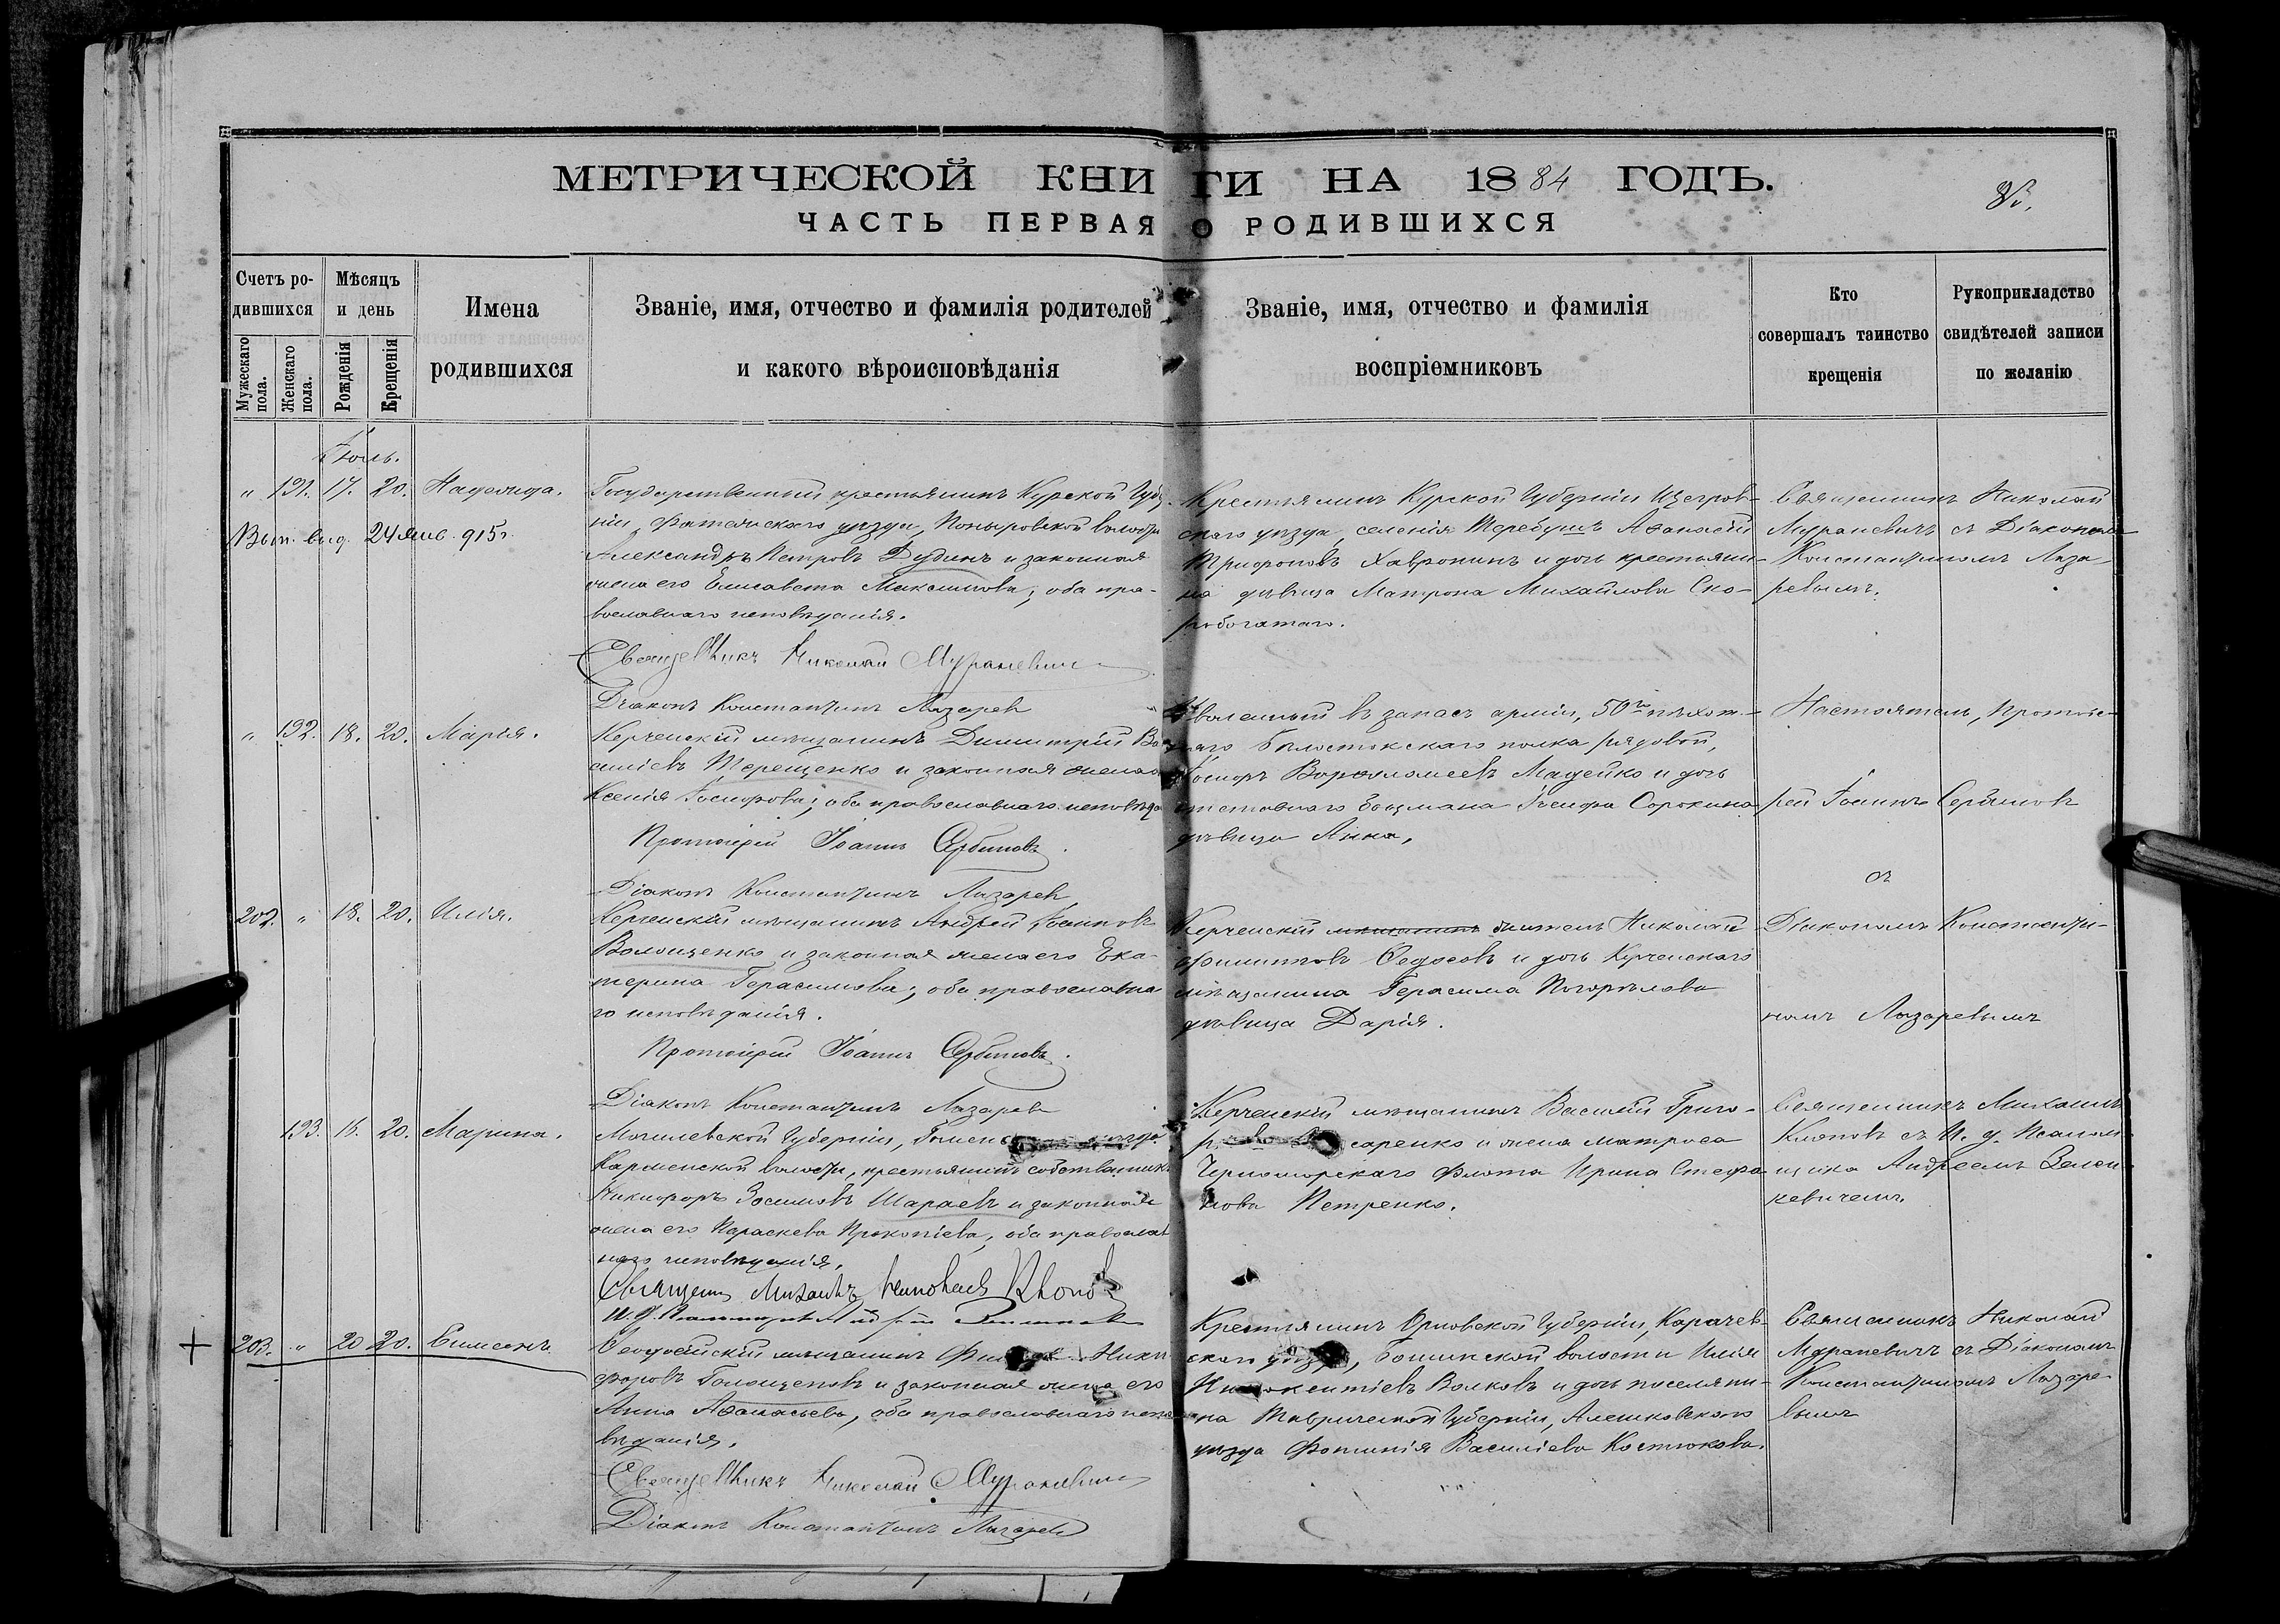 МЕТРИЧЕСКОЙ КНИГИ НА 1884 ГОДЪ.
ЧАСТЬ ПЕРВАЯ О РОДИВШИХСЯ
Счетъ ро-
дившихся
Мужескаго пола.
Женскаго пола.
Мѣсяцъ
и день
Рожденія
Крещенія
Имена
родившихся
Званіе, имя, отчество и фамилія родителей
и какого вѣроисповѣданія
Званіе, имя, отчество и фамилія
воспріемниковъ
Кто
совершалъ таинство
крещенія
Рукоприкладство
свидѣтелей записи
по желанію
Іюль.
" 191. 17. 20. Надежда.
Вып. выд. 24 янв. 915 г.
Государственный крестьянинъ Курской Губер-
ніи, Фатежскаго уѣзда, Поныровской волости
Александръ Петровъ Дудинъ и законная
жена его Елисавета Максимова; оба пра-
вославнаго исповѣданія.
Священникъ Николай Мураневичъ
Діаконъ Константинъ Лазаревъ
Крестьянинъ Курской Губерніи Щегров-
скаго уѣзда, селенія Теребушъ Аѳанасій
Трифоновъ Хавронинъ и дочь крестьяни-
на дѣвица Матрона Михайлова Ско-
робогатаго.
Священникъ Николай
Мураневичъ съ Діакономъ
Константиномъ Лаза-
ревымъ.
" 192. 18. 20. Марія.
Керченскій мѣщанинъ Димитрій Ва-
силіевъ Терещенко и законная жена его
Ксенія Іосифова; оба православнаго исповѣда
Протоіерей Іоаннъ Сербиновъ.
Діаконъ Константинъ Лазаревъ
Уволенный въ запасъ арміи, 50го пѣхот-
наго Бѣлостокскаго полка рядовой,
Іосифъ Варѳоломеевъ Мадейко и дочь
отставнаго боцмана Іосифа Сорокина
дѣвица Анна.
Настоятель, Протоіе-
рей Іоаннъ Сербиновъ
съ
Діакономъ Константи-
номъ Лазаревымъ
202. " 18. 20. Илія.
Керченскій мѣщанинъ Андрей Іоанновъ
Волощенко и законная жена его Ека-
терина Герасимова; оба православна
го исповѣданія.
Протоіерей Іоаннъ Сербиновъ.
Діаконъ Константинъ Лазаревъ
Керченскій мѣщанинъ житель Николай
Филипповъ Ѳедосовъ и дочь Керченскаго
мѣщанина Герасима Погорѣлова
дѣвица Дарія.
193. 16. 20. Марина.
Могилевской Губерніи, Гомельскаго уѣзда
Карменской волости, крестьянинъ собственникъ
Никифоръ Зосимовъ Шараевъ и законная
жена его Параскева Прокопіева, оба православ
наго исповѣданія.
Священникъ Михаилъ Клоповъ
И. д. Псаломщика Андрей
Керченскій мѣщанинъ Василій Григо-
саренко и жена матроса
Черноморскаго флота Ирина Стефа
нова Петренко.
Священникъ Михаилъ
Клоповъ съ И. д. Псалом
щика Андреемъ Зелен
кевичемъ.
+ 203. " 20 20. Симеонъ
Ѳеодосійскій мѣщанинъ Ники
форовъ Голощеповъ и законная жена его
Анна Аѳанасьева, оба православнаго испо
вѣданія.
Священникъ Николай Мураневичъ
Діаконъ Константинъ Лазаревъ
Крестьянинъ Орловской Губерніи, Карачев-
скаго уѣзда, Бошинской волости Илія
Иннокентіевъ Волковъ и дочь поселяни-
на Таврической Губерніи, Алешковскаго
уѣзда Фотинія Василіева Костюкова.
Священникъ Николай
Мураневичъ съ Діакономъ
Константиномъ Лазаре-
вымъ